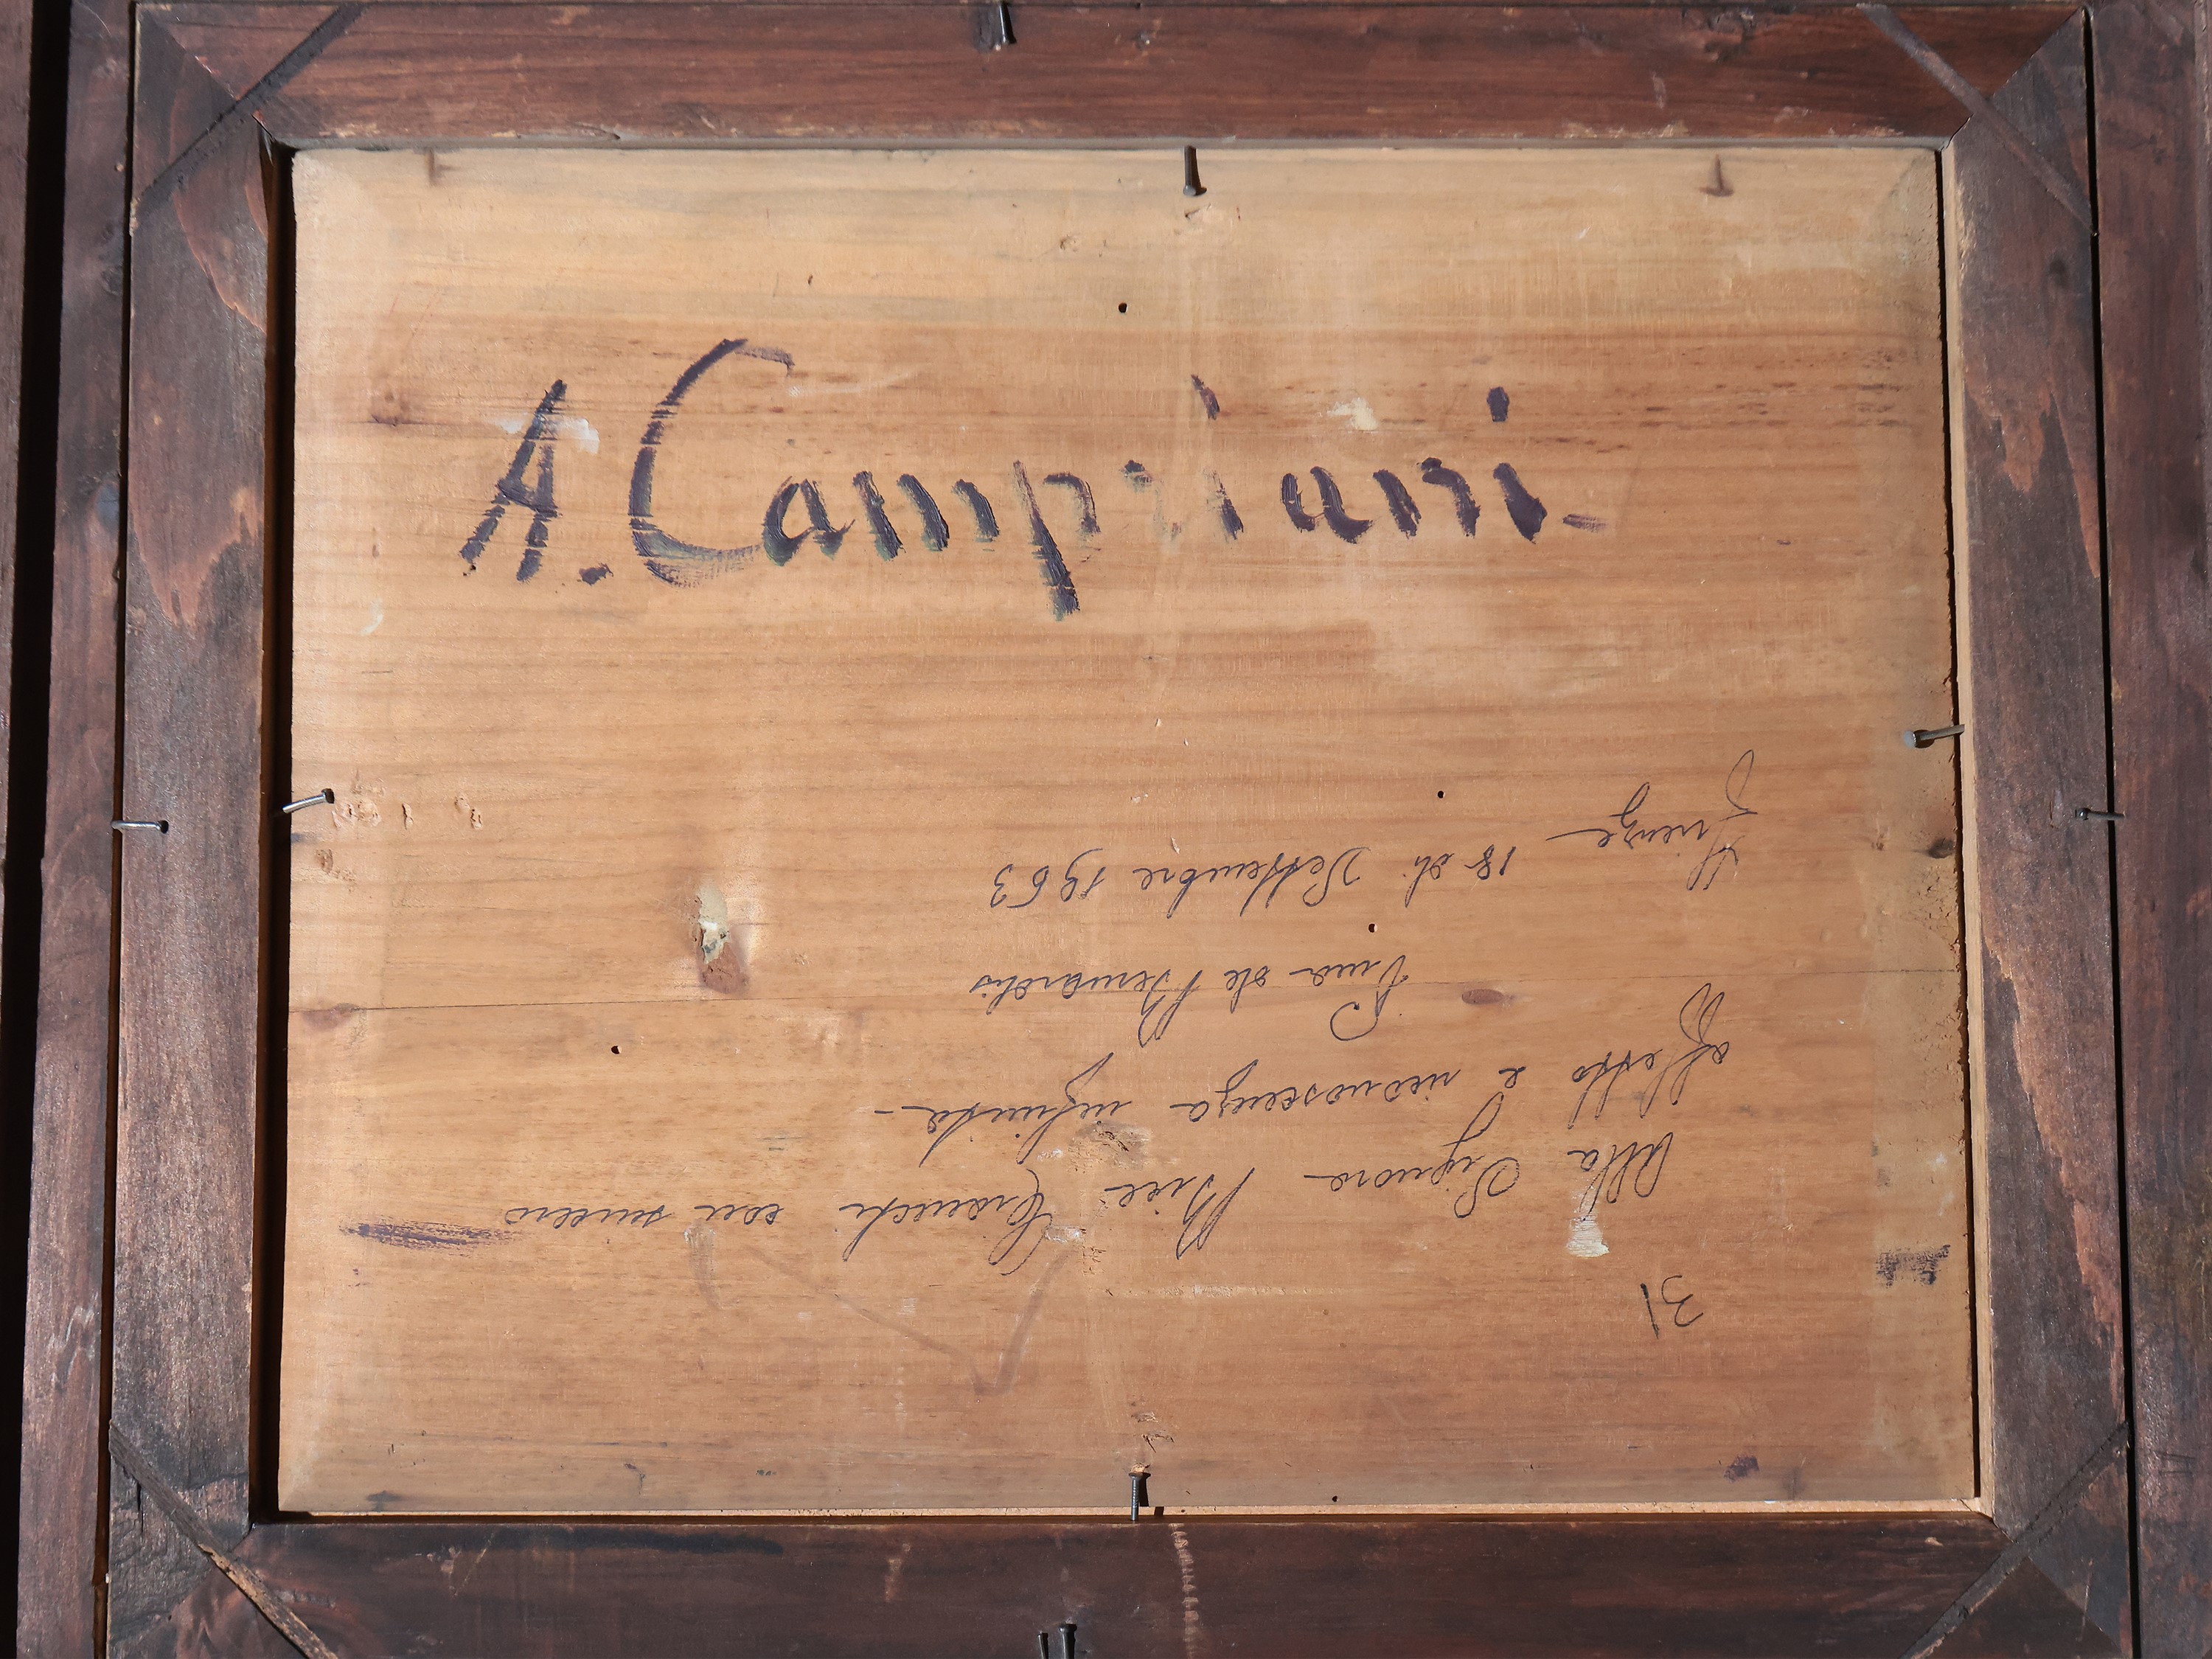 A. Campriani.
31
Alla Signora Bice Bianchi con sincero
affetto e riconoscenza infinita -
Pina de Bernardis
Firenze - 18 di Settembre 1963